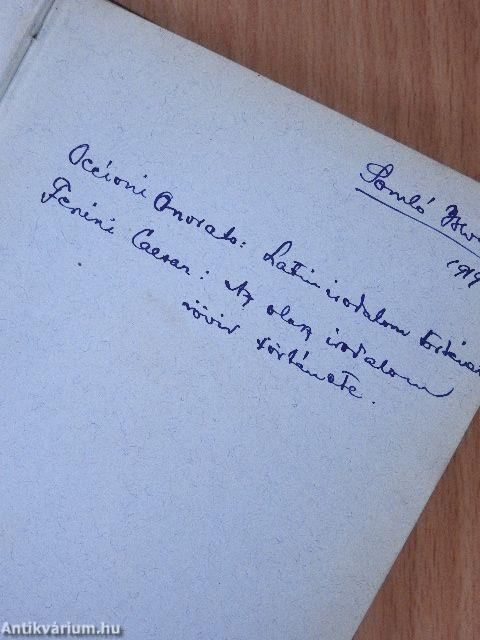 Somló
191
Occioni Onorato: Latin irodalom történ
Fenini Caesar: Az olasz irodalom
rövid története.
Antikvárium.hu